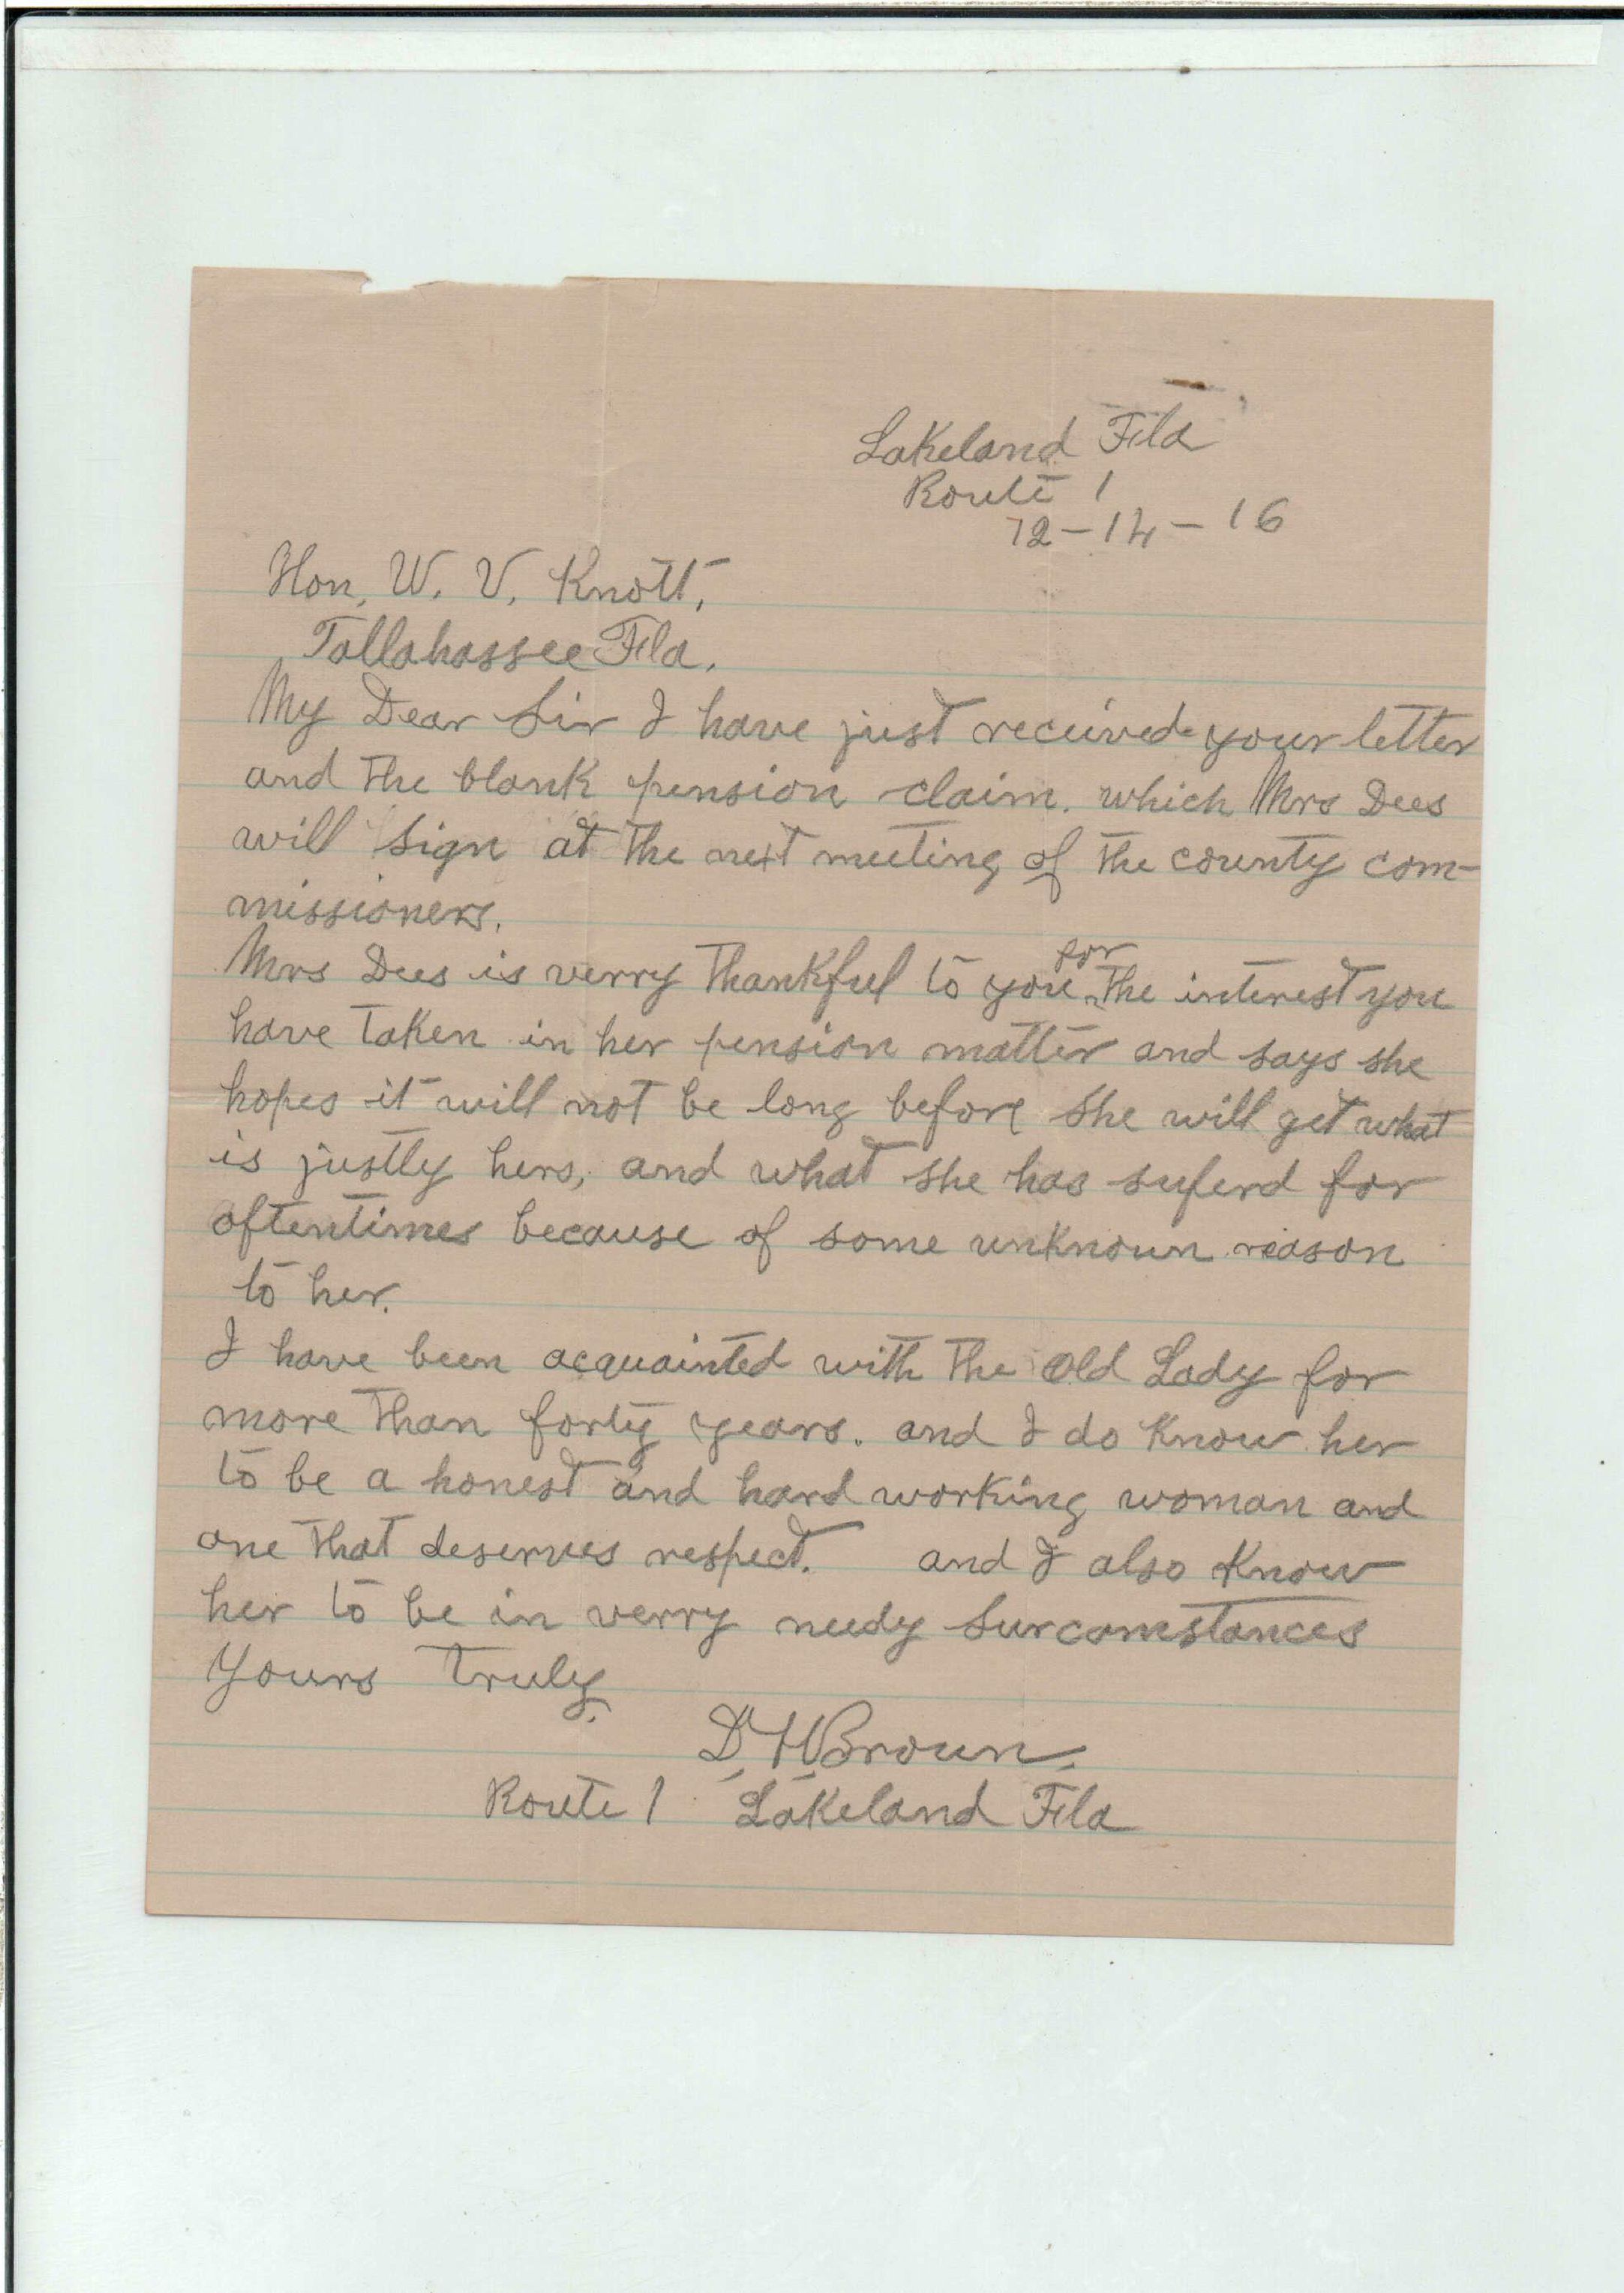 Lakeland Fla
Route 1
12-14-16
Hon. W. V. Knott,
Tallahassee Fla.
My Dear Sir I have just received your letter
and the blank pension claim. which Mrs Dees
will sign at the next meeting of the county com-
missioners.
Mrs Dees is verry thankful to you for the interest you
have taken in her pension matter and says she
hopes it will not be long before she will get what
is justly hers, and what she has suferd for
oftentimes because of some unknown reason
to her.
I have been acquainted with the Old Lady for
more than forty years. and I do know her
to be a honest and hard working woman and
one that deserves respect. and I also know
her to be in verry needy surcomstances
Yours truly.
D. H. Brown.
Route 1 Lakeland Fla